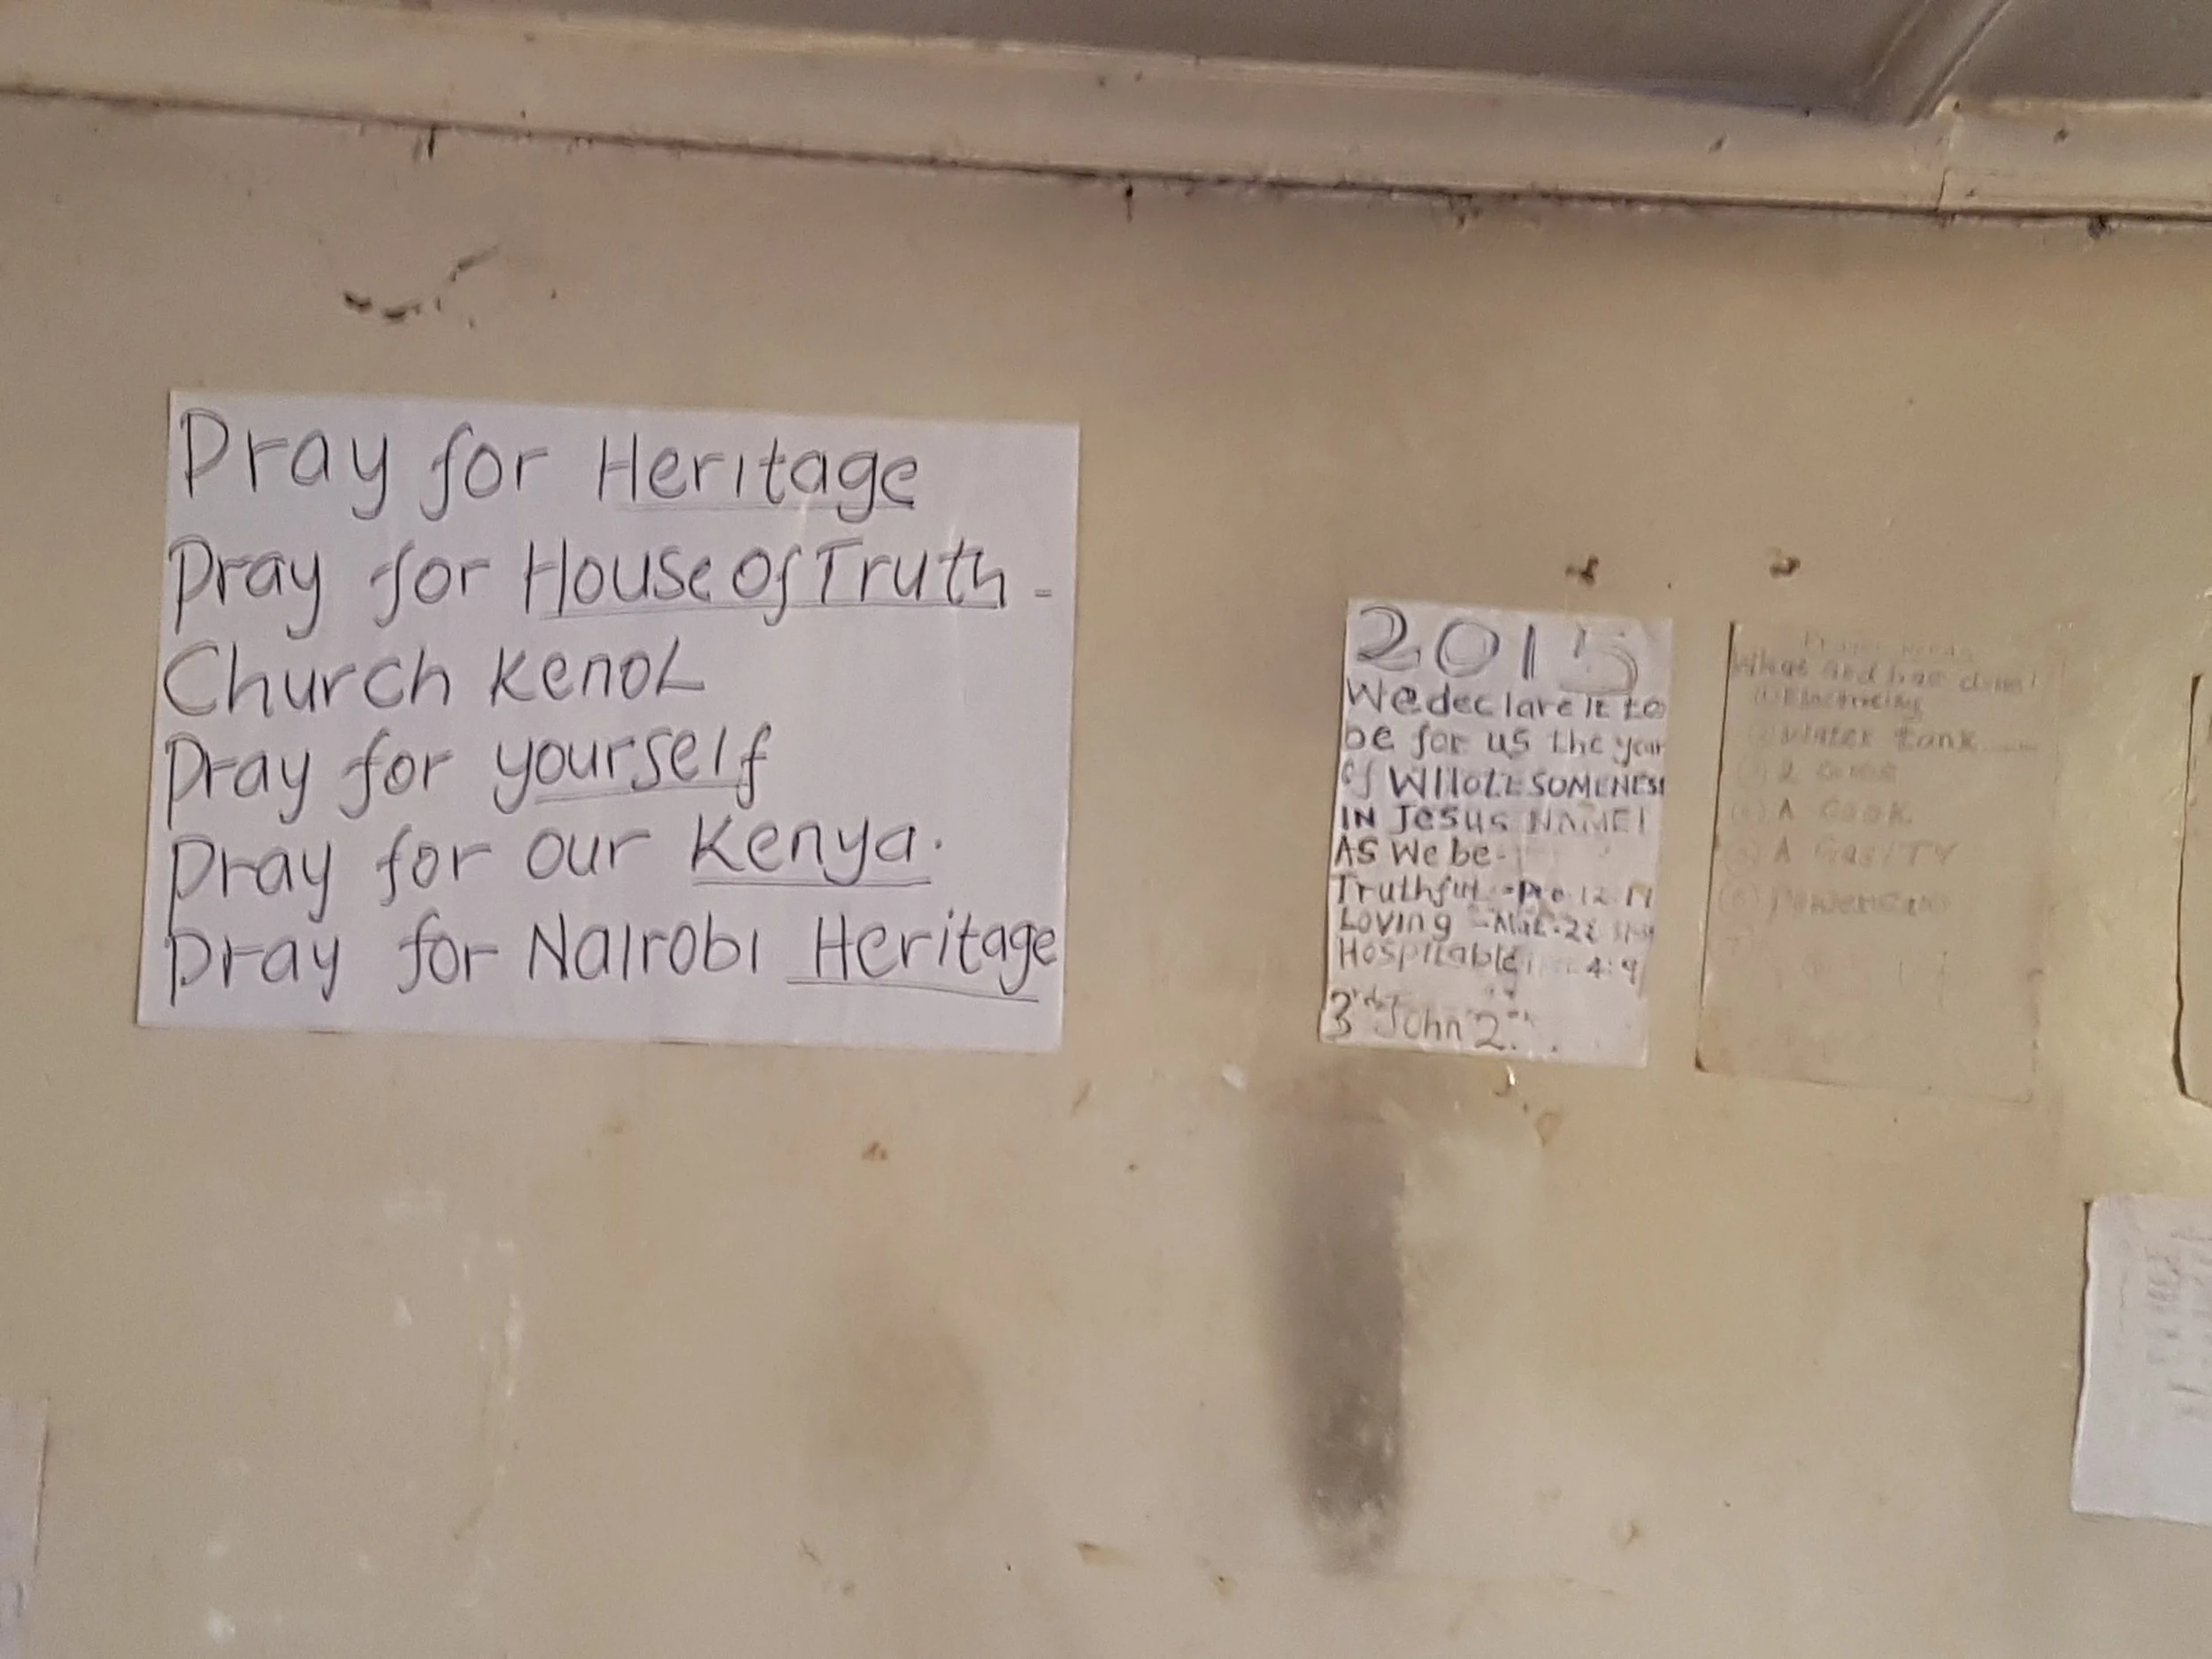 Pray for Heritage
Pray for House of Truth -
Church KenoL
Pray for yourself
Pray for our Kenya.
Pray for Nairobi Heritage
2015
We declare it to
be for us the year
of WHOLESOMENESS
IN Jesus NAME!
AS We be-
Truthful - Pro 12
Loving - Mat. 22
Hospitable 4:9
3rd John 2
What God has done!
(1) Electricity
(2) Water tank
(3) 2
(4) A Cook
(5) A Gas/TV
(6)